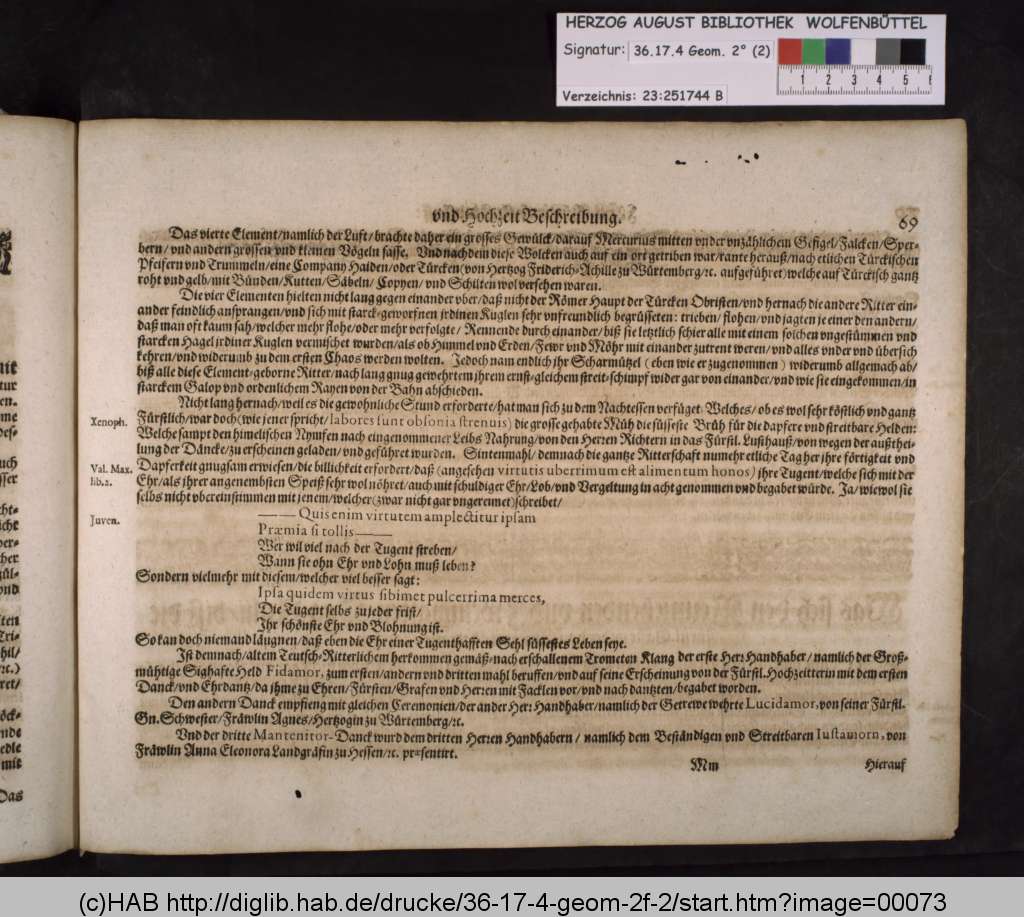 HERZOG AUGUST BIBLIOTHEK WOLFENBÜTTEL
Signatur: 36.17.4 Geom. 2° (2)
1 2 3 4 5 6
Verzeichnis: 23:251744 B
vnd Hochzeit Beschreibung.
69
Das vierte Element/namlich der Luft/brachte daher ein grosses Gewülck/darauf Mercurius mitten vnder vnzählichem Gefigel/Falcken/Sper-
bern/vnd andern grossen vnd kleinen Vögeln sasse. Vnd nachdem diese Wolcken auch auf ein ort getriben war/rante herauß/nach etlichen Türckischen
Pfeifern vnd Trummeln/eine Company Haiden/oder Türcken (von Hertzog Friderich-Achille zu Würtemberg/ꝛc. aufgeführet) welche auf Türckisch gantz
roht vnd gelb/mit Bünden/Kutten/Säbeln/Copyen/vnd Schilten wol versehen waren.
Die vier Elementen hielten nicht lang gegen einander vber/daß nicht der Römer Haupt der Türcken Obristen/vnd hernach die andere Ritter ein-
ander feindlich ansprangen/vnd sich mit starck-geworfnen jrdinen Kuglen sehr vnfreundlich begrüsseten: trieben/flohen/vnd jagten je einer den andern/
daß man oft kaum sah/welcher mehr flohe/oder mehr verfolgte/Rennende durch einander/biß sie letzlich schier alle mit einem solchen vngestümmen vnd
starcken Hagel jrdiner Kuglen vermischet wurden/als ob Himmel vnd Erden/Fewr vnd Möhr mit einander zutrent weren/vnd alles vnder vnd übersich
kehren/vnd widerumb zu dem ersten Chaos werden wolten. Jedoch nam endlich jhr Scharmützel (eben wie er zugenommen) widerumb allgemach ab/
biß alle diese Element-geborne Ritter/nach lang gnug gewehrtem jhrem ernst-gleichem streit-schimpf wider gar von einander/vnd wie sie eingekommen/in
starckem Galop vnd ordenlichem Rayen von der Bahn abschieden.
Nicht lang hernach/weil es die gewohnliche Stund erforderte/hat man sich zu dem Nachtessen verfüget: Welches/ob es wol sehr köstlich vnd gantz
Xenoph.
Fürstlich/war doch (wie jener spricht/labores sunt obsonia strenuis) die grosse gehabte Müh die süsseste Brüh für die dapfere vnd streitbare Helden:
Welche sampt den himelischen Nymfen nach eingenommener Leibs Nahrung/von den Herren Richtern in das Fürstl. Lusthauß/von wegen der außthei-
lung der Däncke/zu erscheinen geladen/vnd geführet wurden. Sintenmahl/demnach die gantze Ritterschaft numehr etliche Tag her jhre förtigkeit vnd
Val. Max.
lib.2.
Dapferkeit gnugsam erwiesen/die billichkeit erfordert/daß (angesehen virtutis uberrimum est alimentum honos) jhre Tugent/welche sich mit der
Ehr/als jhrer angenembsten Speiß sehr wol nöhret/auch mit schuldiger Ehr/Lob/vnd Vergeltung in acht genommen vnd begabet würde. Ja/wiewol sie
selbs nicht übereinstimmen mit jenem/welcher (zwar nicht gar vngereimet) schreibet/
Juven.
—— Quis enim virtutem amplectitur ipsam
Præmia si tollis ——
Wer wil viel nach der Tugent streben/
Wann sie ohn Ehr vnd Lohn muß leben?
Sondern vielmehr mit diesem/welcher viel besser sagt:
Ipsa quidem virtus sibimet pulcerrima merces,
Die Tugent selbs zu jeder frist/
Jhr schönste Ehr vnd Blohnung ist.
So kan doch niemand läugnen/daß eben die Ehr einer Tugenthafften Sehl süssestes Leben seye.
Ist demnach/altem Teutsch-Ritterlichem herkommen gemäß/nach erschallenem Trometen Klang der erste Herr Handhaber/namlich der Groß-
mühtige Sighafte Held Fidamor, zum ersten/andern vnd dritten mahl beruffen/vnd auf seine Erscheinung von der Fürstl. Hochzeitterin mit dem ersten
Danck/vnd Ehrdantz/da jhme zu Ehren/Fürsten/Grafen vnd Herren mit Facklen vor/vnd nach dantzten/begabet worden.
Den andern Danck empfieng mit gleichen Ceremonien/der ander Herr Handhaber/namlich der Getrewe wehrte Lucidamor, von seiner Fürstl.
Gn. Schwester/Fräwlin Agnes/Hertzogin zu Würtemberg/ꝛc.
Vnd der dritte Mantenitor-Danck wurd dem dritten Herren Handhabern/namlich dem Beständigen vnd Streitbaren Iustamorn, von
Fräwlin Anna Eleonora Landgräfin zu Hessen/ꝛc. præsentirt.
Mm
Hierauf
(c)HAB http://diglib.hab.de/drucke/36-17-4-geom-2f-2/start.htm?image=00073